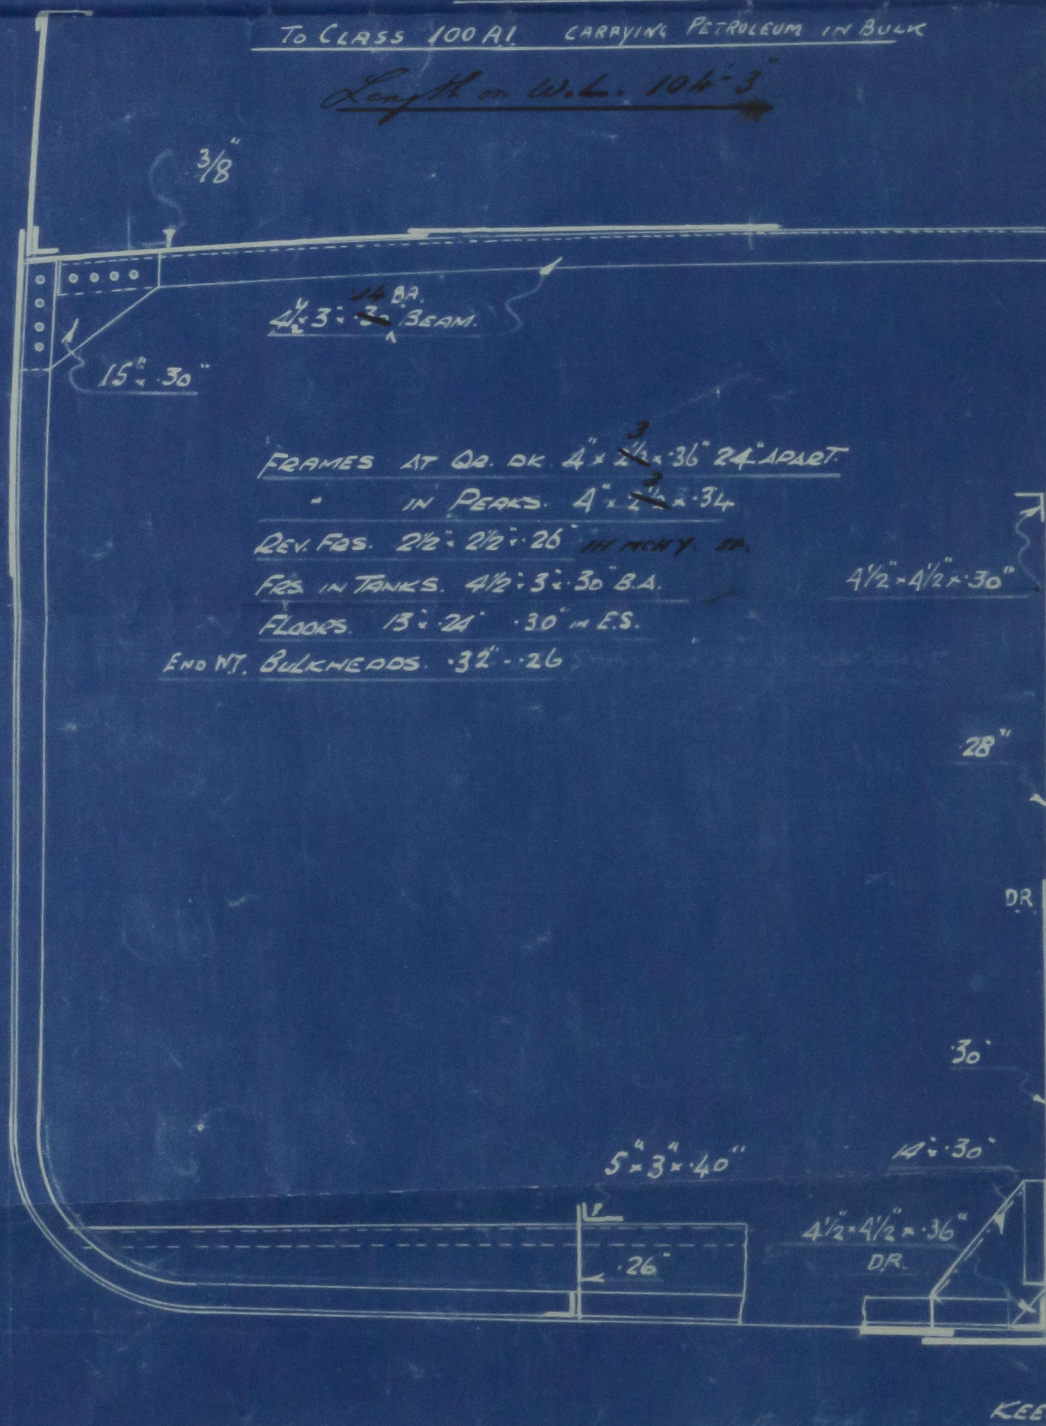 To CLASS 100 A1. CARRYING PETROLEUM IN BULK
Length on W.L. 104'-3"
3/8"
.34 BA.
4½" × 3" × .30" BEAM.
15" × .30"
3
FRAMES AT QR. DK. 4" × 2½ × .36" 24" APART.
3
" IN PEAKS. 4" × 2½ × .34
REV. FRS. 2½" × 2½" × .26" IN MCHY. SP.
4½" × 4½" × .30"
FRS. IN TANKS. 4½" × 3" × .30" B.A.
FLOORS. 13" × .24" .30" IN E.S.
END WT. BULKHEADS. .32" - .26
.28"
DR.
.30"
5" × 3" × .40"
14" × .30"
4½" × 4½" × .36"
D.R.
.26"
KEE